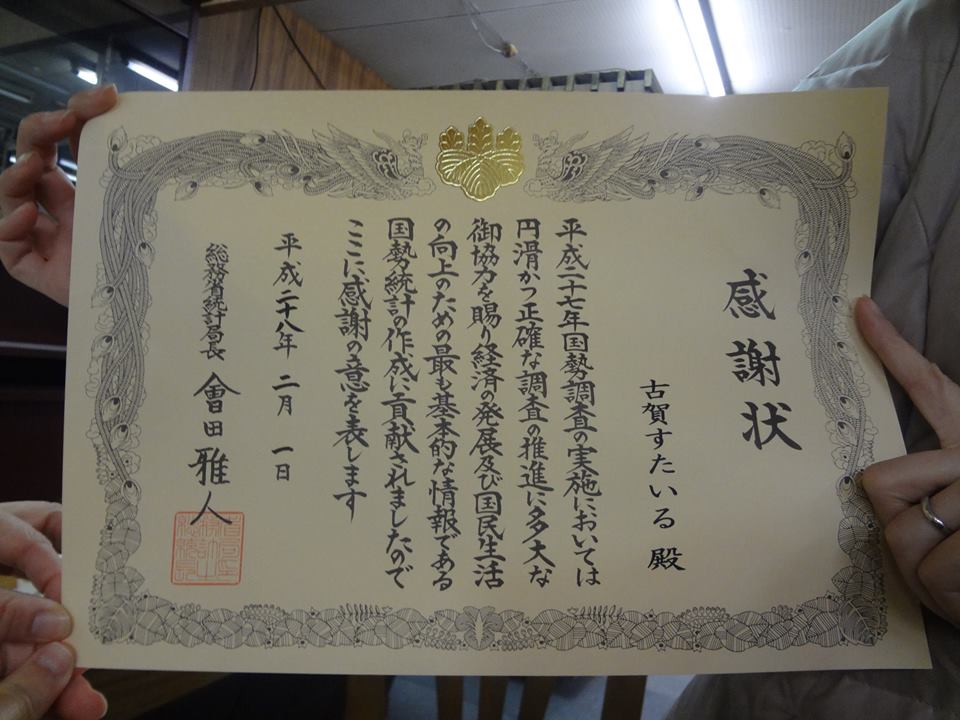 感謝状
古賀すたいる 殿
平成二十七年国勢調査の実施においては
円滑かつ正確な調査の推進に多大な
御協力を賜り経済の発展及び国民生活
の向上のための最も基本的な情報である
国勢統計の作成に貢献されましたので
ここに感謝の意を表します
平成二十八年 二月 一日
総務省統計局長 會田雅人